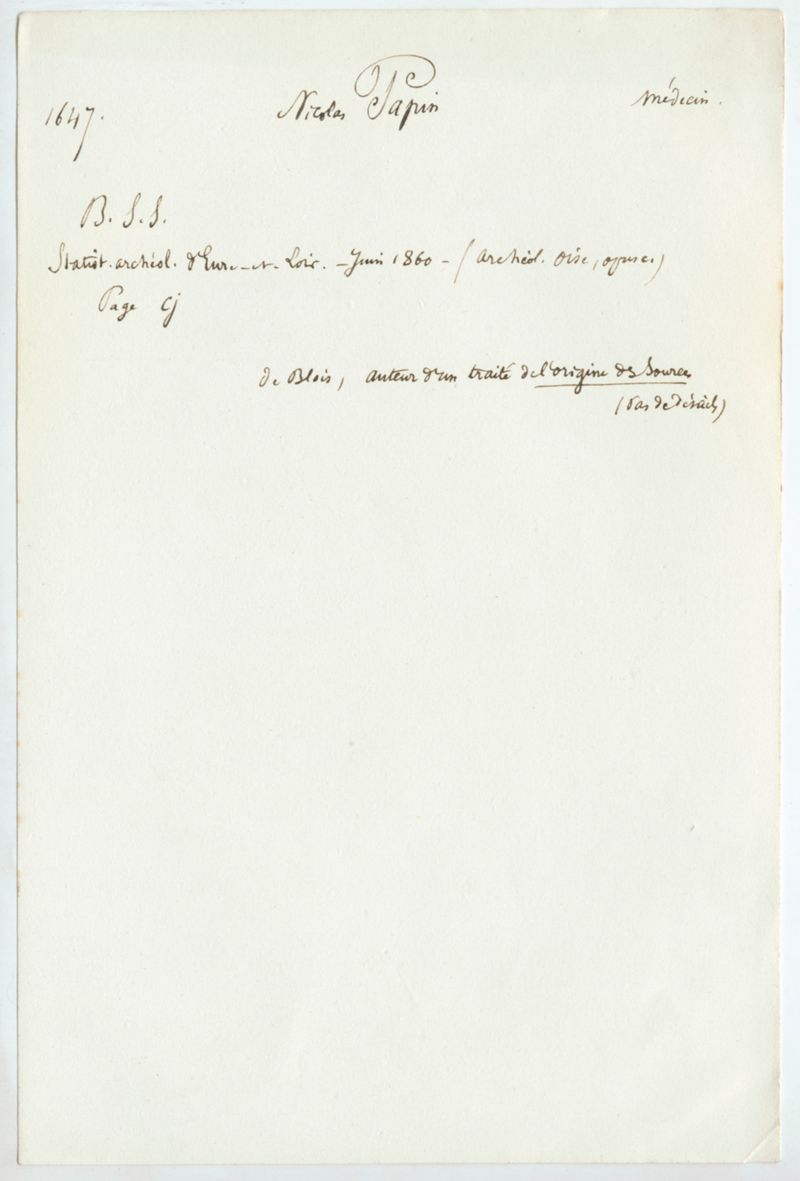 1647. Nicolas Papin Médecin.
B. S. S.
Statist. archéol. d'Eure-et-Loir. - Juin 1860 - (archéol. oise, opusc.)
Page cj
de Blois, auteur d'un traité de l'origine des Sources
(Pas de détails)